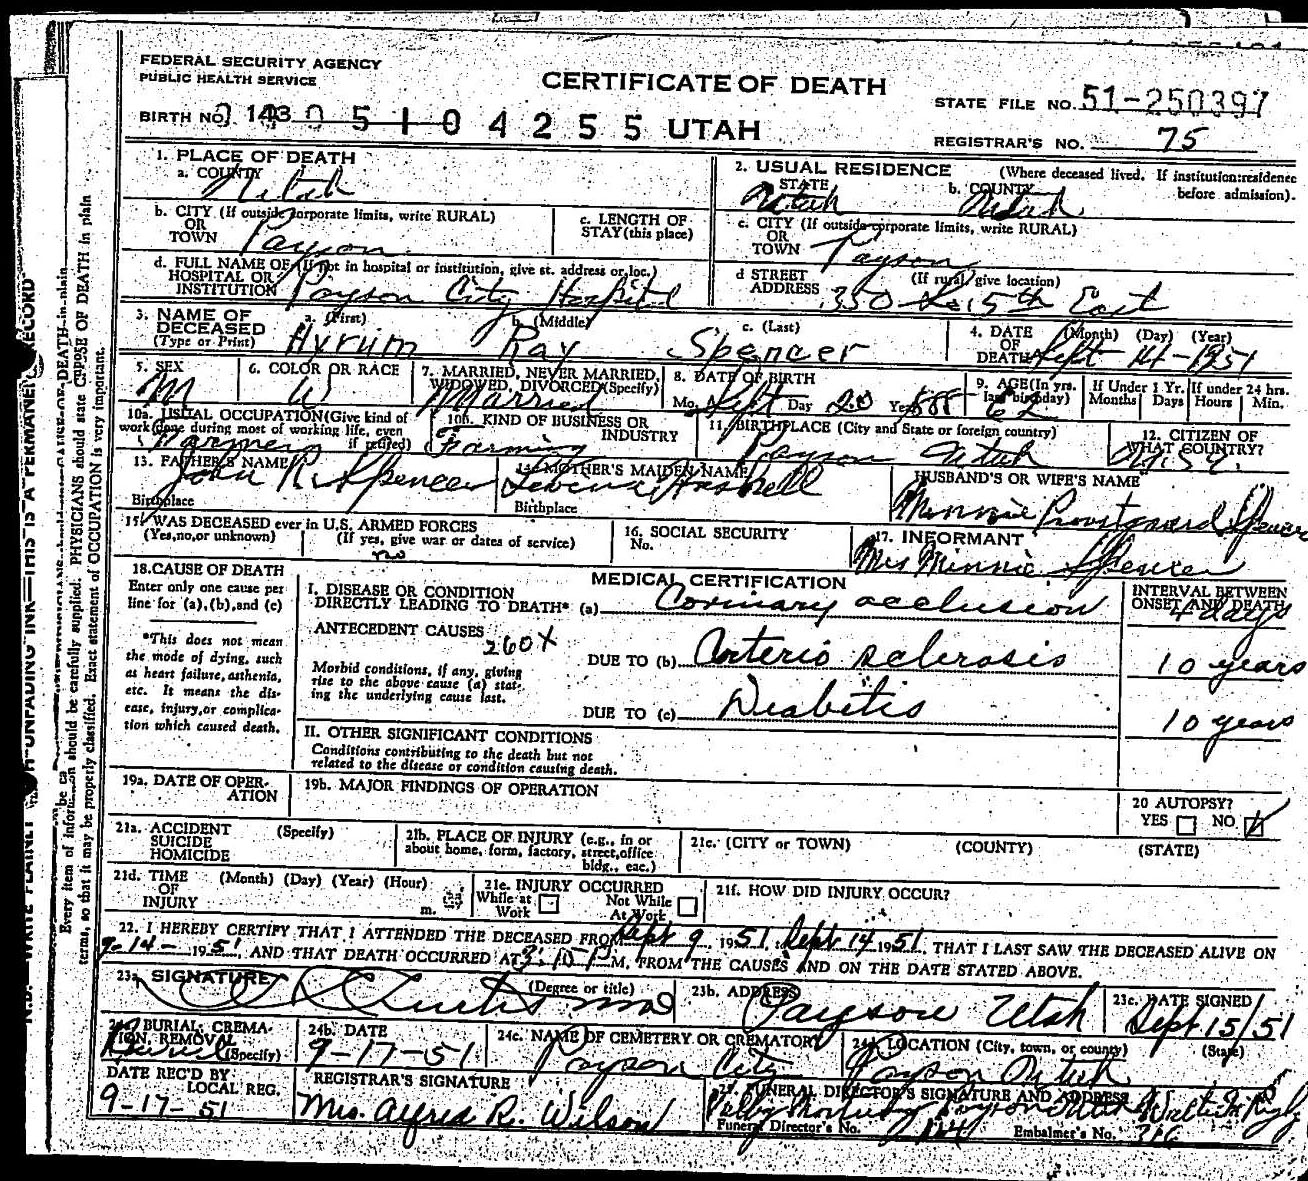 FEDERAL SECURITY AGENCY
PUBLIC HEALTH SERVICE
CERTIFICATE OF DEATH
STATE FILE NO. 51-250397
BIRTH NO. 143 0 5 1 0 4 2 5 5 UTAH
REGISTRAR'S NO. 75
1. PLACE OF DEATH
a. COUNTY
Utah
2. USUAL RESIDENCE (Where deceased lived. If institution: residence before admission).
STATE Utah b. COUNTY Utah
b. CITY (If outside corporate limits, write RURAL)
OR
TOWN Payson
c. LENGTH OF
STAY (this place)
c. CITY (If outside corporate limits, write RURAL)
OR
TOWN Payson
d. FULL NAME OF (If not in hospital or institution, give st. address or loc.)
HOSPITAL OR
INSTITUTION Payson City Hospital
d STREET (If rural, give location)
ADDRESS 350 So. 5th East
3. NAME OF
DECEASED
(Type or Print)
a. (First) b. (Middle) c. (Last)
Hyrum Ray Spencer
4. DATE (Month) (Day) (Year)
OF
DEATH Sept 14-1951
5. SEX
M
6. COLOR OR RACE
W
7. MARRIED, NEVER MARRIED,
WIDOWED, DIVORCED (Specify)
Married
8. DATE OF BIRTH
Mo. Sept Day 20 Yr. 1888
9. AGE (In yrs. last birthday)
62
If Under 1 Yr. Months Days
If under 24 hrs. Hours Min.
10a. USUAL OCCUPATION (Give kind of
work done during most of working life, even
if retired)
Farmer
10b. KIND OF BUSINESS OR
INDUSTRY
Farming
11. BIRTHPLACE (City and State or foreign country)
Payson Utah
12. CITIZEN OF
WHAT COUNTRY?
13. FATHER'S NAME
John R. Spencer
Birthplace
14. MOTHER'S MAIDEN NAME
Birthplace
HUSBAND'S OR WIFE'S NAME
Minnie Spencer
15. WAS DECEASED ever in U.S. ARMED FORCES
(Yes, no, or unknown) (If yes, give war or dates of service)
no
16. SOCIAL SECURITY
No.
17. INFORMANT
Mrs Minnie Spencer
18. CAUSE OF DEATH
Enter only one cause per
line for (a), (b), and (c)
*This does not mean
the mode of dying, such
as heart failure, asthenia,
etc. It means the dis-
ease, injury, or complica-
tion which caused death.
MEDICAL CERTIFICATION
INTERVAL BETWEEN
ONSET AND DEATH
I. DISEASE OR CONDITION
DIRECTLY LEADING TO DEATH* (a) Corinary occlusion 4 days
ANTECEDENT CAUSES
260X
Morbid conditions, if any, giving
rise to the above cause (a) stat-
ing the underlying cause last.
DUE TO (b) Arterio sclerosis 10 years
DUE TO (c) Diabetis 10 years
II. OTHER SIGNIFICANT CONDITIONS
Conditions contributing to the death but not
related to the disease or condition causing death.
19a. DATE OF OPER-
ATION
19b. MAJOR FINDINGS OF OPERATION
20 AUTOPSY?
YES NO
21a. ACCIDENT (Specify)
SUICIDE
HOMICIDE
21b. PLACE OF INJURY (e.g., in or
about home, form, factory, street, office
bldg., eac.)
21c. (CITY or TOWN) (COUNTY) (STATE)
21d. TIME (Month) (Day) (Year) (Hour)
OF
INJURY m.
21e. INJURY OCCURRED
While at Work Not While At Work
21f. HOW DID INJURY OCCUR?
22. I HEREBY CERTIFY THAT I ATTENDED THE DECEASED FROM Sept 9 1951 Sept 14 1951 THAT I LAST SAW THE DECEASED ALIVE ON
9-14- 1951, AND THAT DEATH OCCURRED AT 3:10 P M, FROM THE CAUSES AND ON THE DATE STATED ABOVE.
23a. SIGNATURE (Degree or title)
Curtis MD
23b. ADDRESS
Payson Utah
23c. DATE SIGNED
Sept 15/51
24a. BURIAL, CREMA-
TION, REMOVAL
(Specify)
Burial
24b. DATE
9-17-51
24c. NAME OF CEMETERY OR CREMATORY
Payson City
24d. LOCATION (City, town, or county) (State)
Payson Utah
DATE REC'D BY
LOCAL REG.
9-17-51
REGISTRAR'S SIGNATURE
Mrs. Alfred R. Wilson
25. FUNERAL DIRECTOR'S SIGNATURE AND ADDRESS
Funeral Director's No. Embalmer's No. 316
Every item of information should be carefully supplied. PHYSICIANS should state CAUSE OF DEATH in plain
terms, so that it may be properly classified. Exact statement of OCCUPATION is very important.
UNFADING INK—THIS IS A PERMANENT RECORD